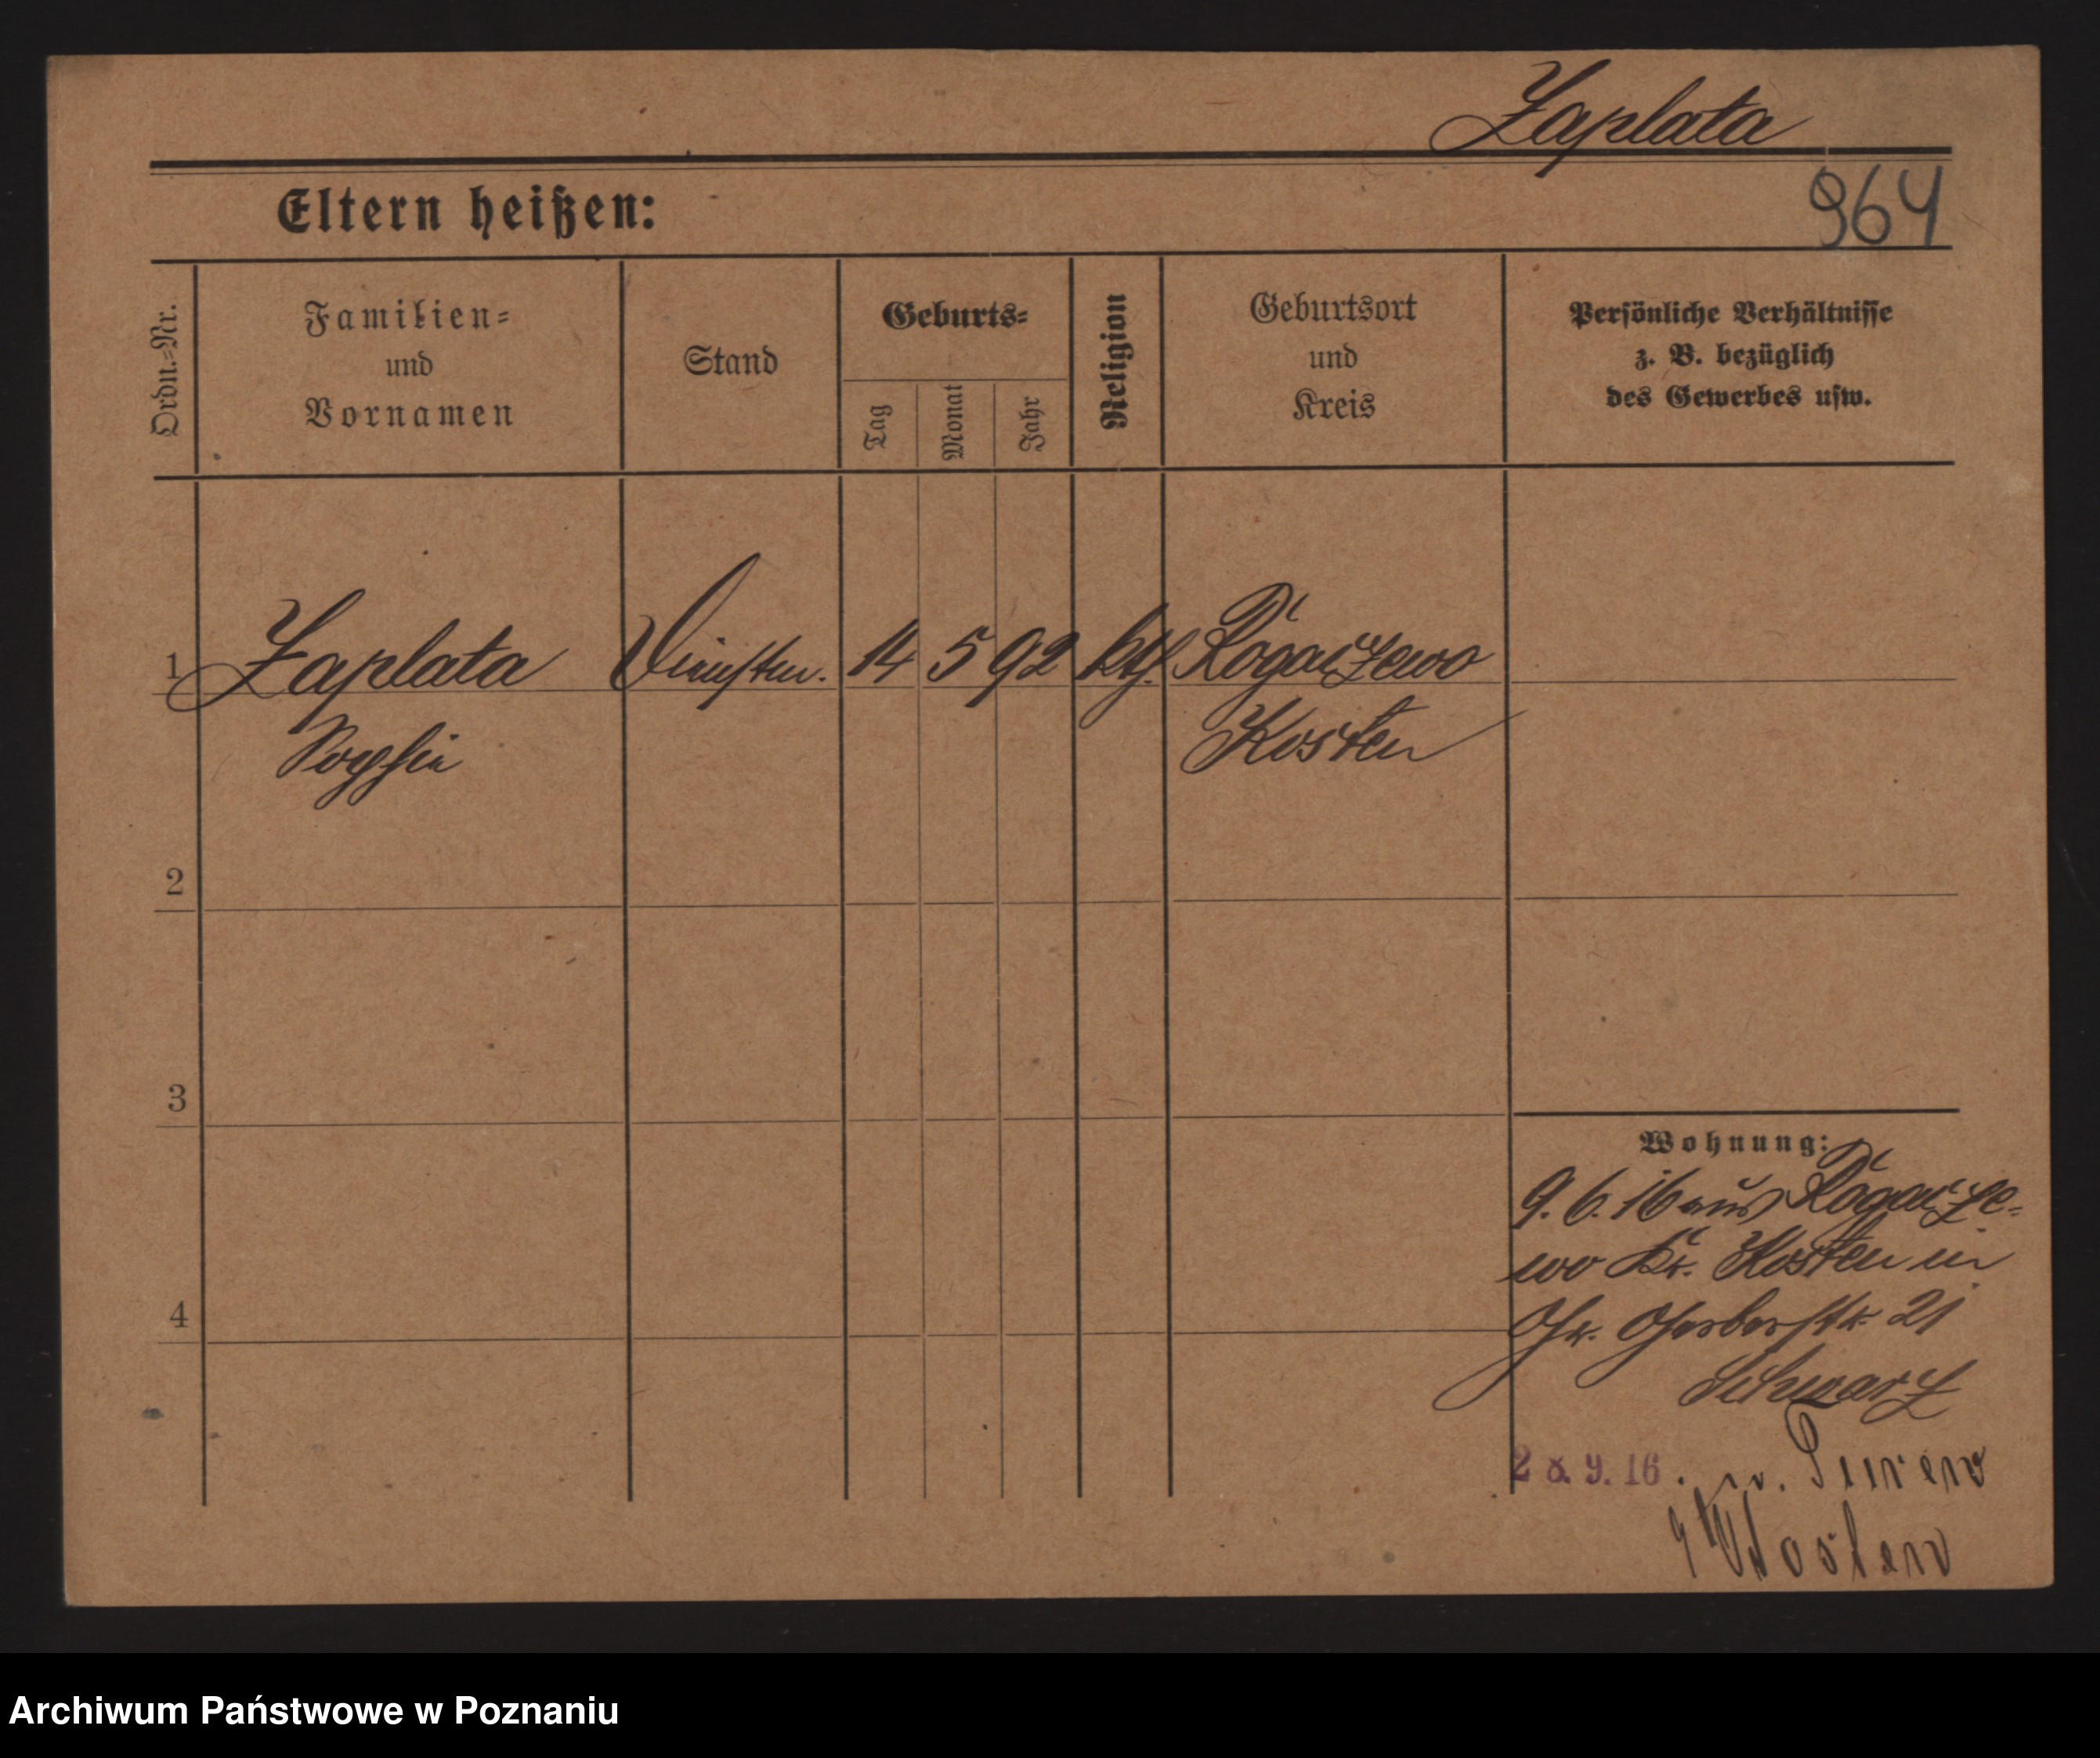 Zaplata
964
Eltern heißen:
Ordn.=Nr.
Familien=
und
Vornamen
Stand
Geburts=
Tag
Monat
Jahr
Religion
Geburtsort
und
Kreis
Persönliche Verhältnisse
z. B. bezüglich
des Gewerbes usw.
1 Zaplata 14 5 92 kth. Rogaczewo
Sophie Kosten
2
3
4
Wohnung:
9. 6. 16 aus Rogacze-
wo Kr. Kosten in
Gr. Gerberstr. 21
Schwarz
28. 9. 16. n. Turew
Kosten
Archiwum Państwowe w Poznaniu